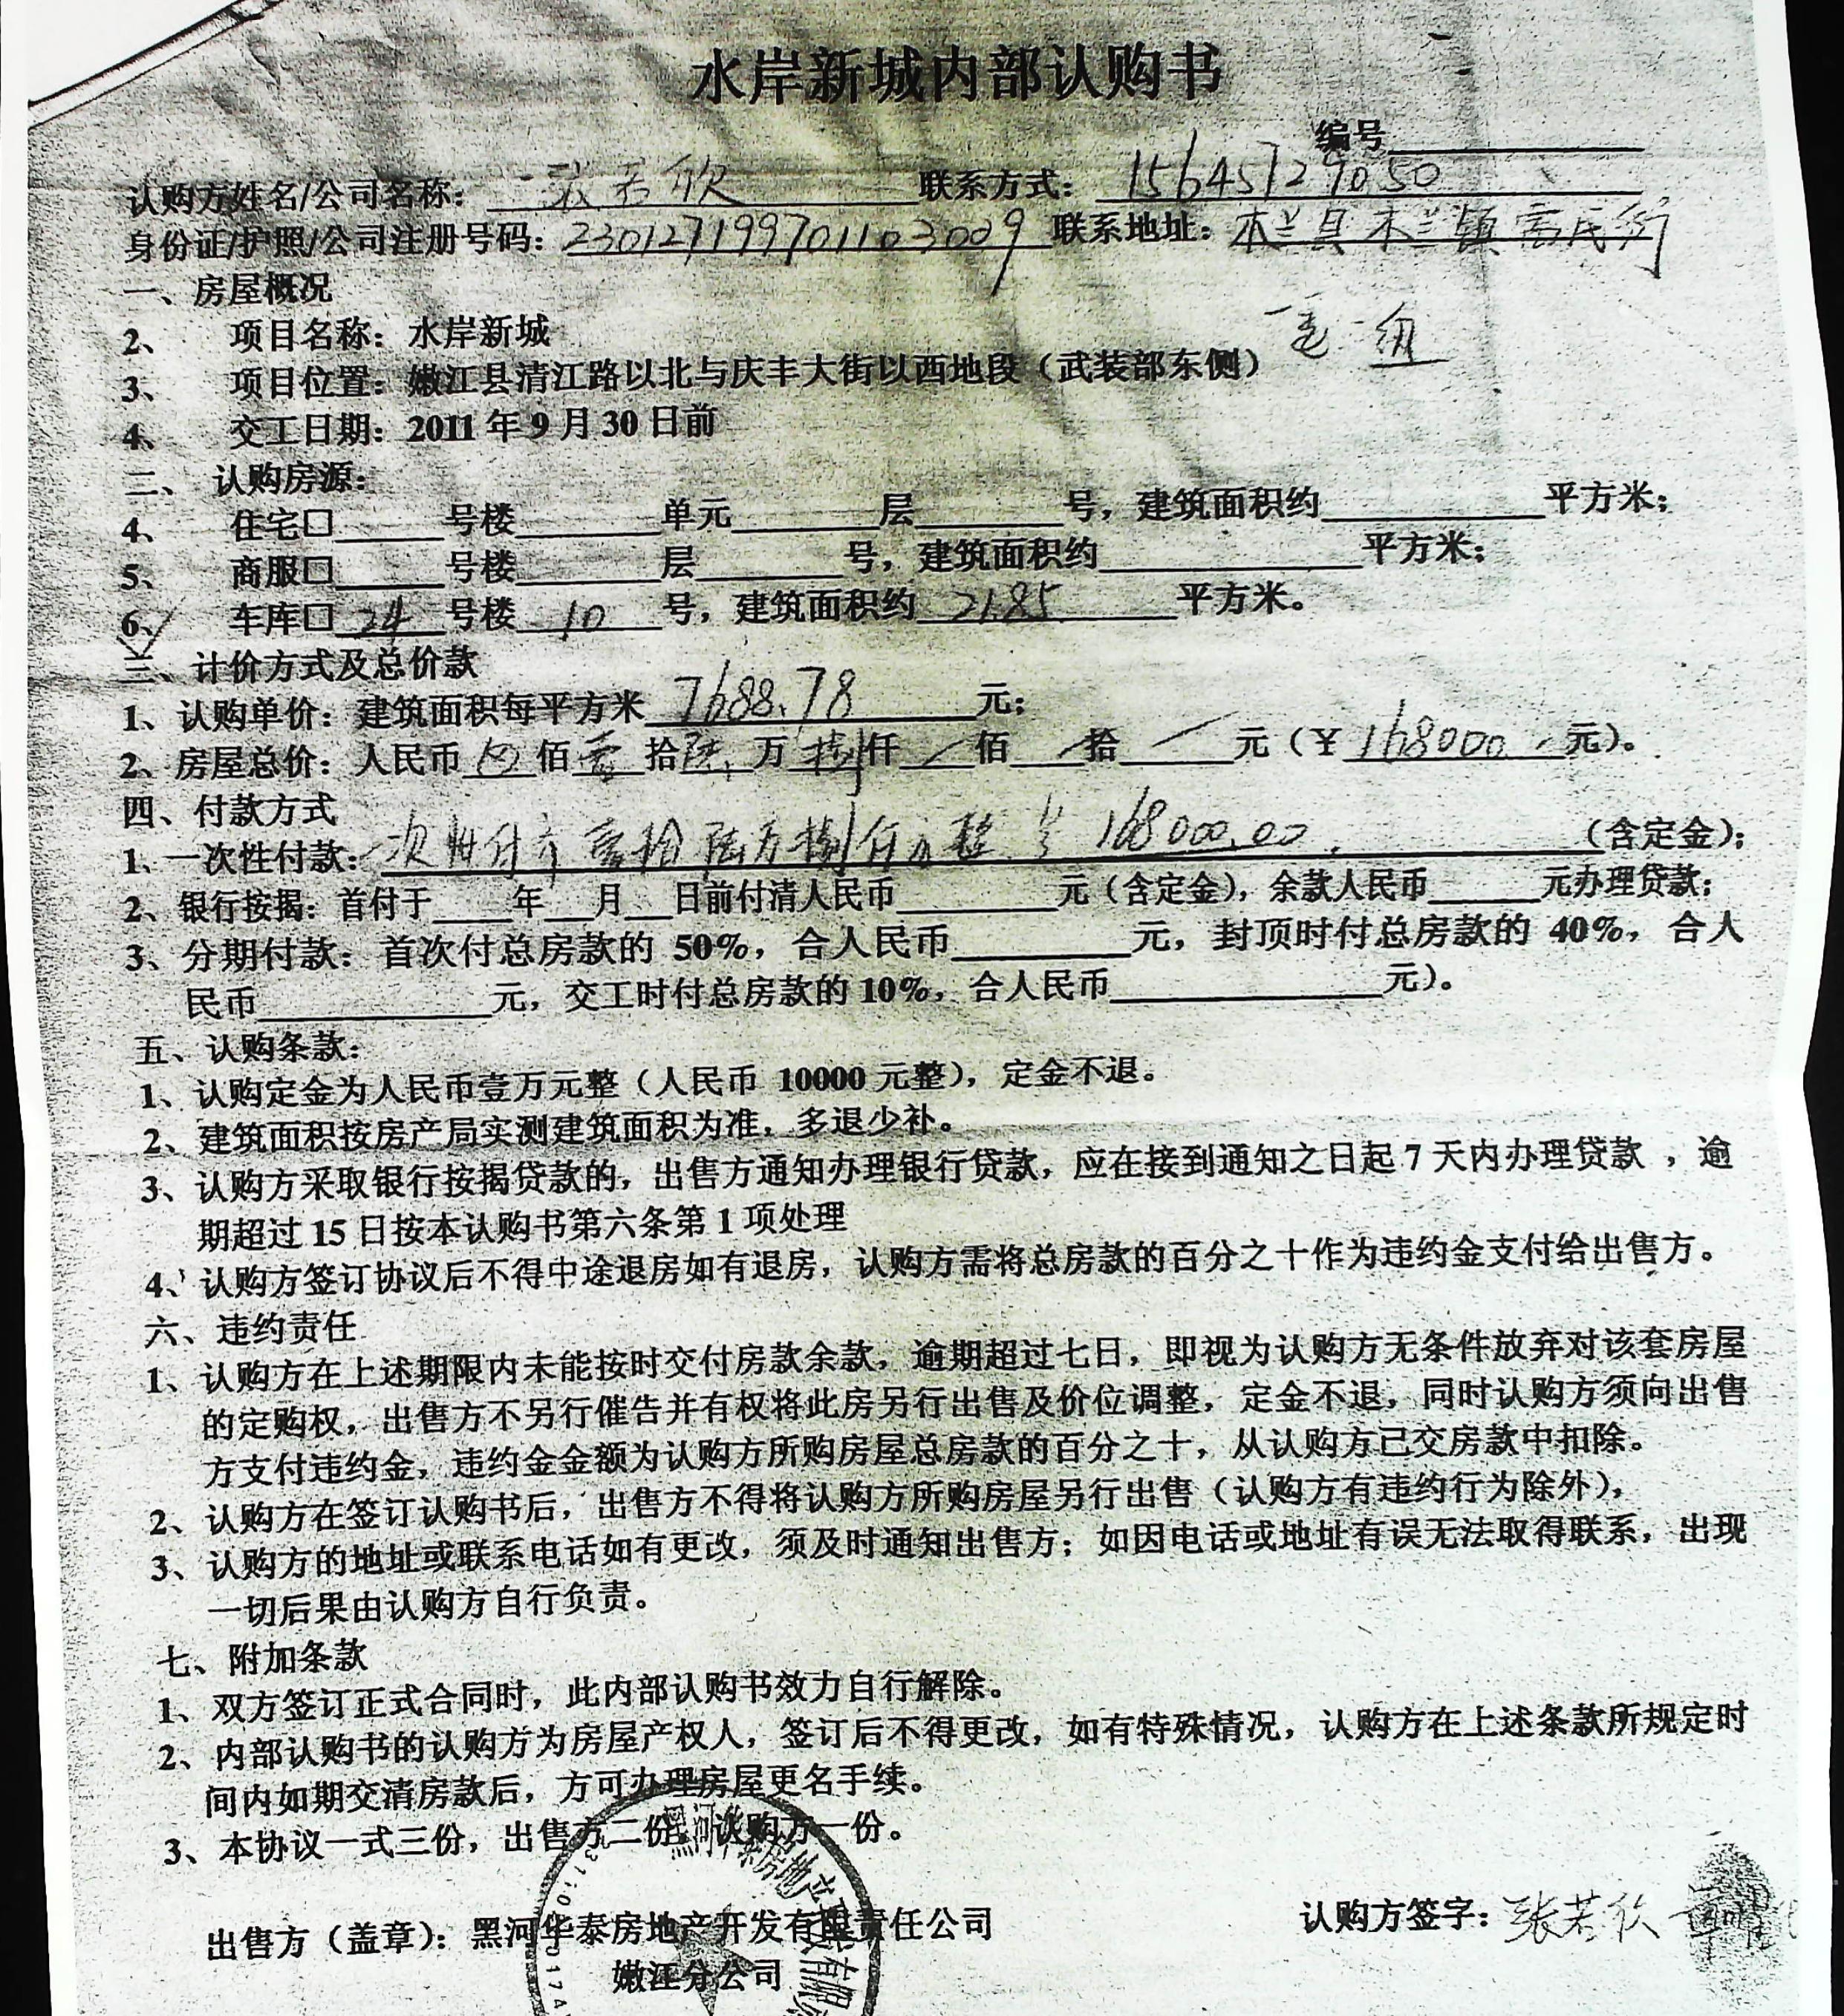 水岸新城内部认购书
编号
认购方姓名/公司名称：张若欣 联系方式：15645729050
身份证/护照/公司注册号码：230127199701103009 联系地址：木兰县木兰镇富民街
一、房屋概况
委一组
2、 项目名称：水岸新城
3、 项目位置：嫩江县清江路以北与庆丰大街以西地段（武装部东侧）
4、 交工日期：2011年9月30日前
二、 认购房源：
4、 住宅□____号楼____单元____层____号，建筑面积约____平方米；
5、 商服□____号楼____层____号，建筑面积约____平方米；
6、 车库□ 24 号楼 10 号，建筑面积约 21.85 平方米。
三、计价方式及总价款
1、认购单价：建筑面积每平方米 7688.78 元；
2、房屋总价：人民币 佰壹拾陆万捌仟／佰／拾／元（￥168000.元）。
四、付款方式
1、一次性付款：一次性付齐壹拾陆万捌仟元整 ￥168000.00.（含定金）；
2、银行按揭：首付于____年__月__日前付清人民币____元（含定金），余款人民币____元办理贷款；
3、分期付款：首次付总房款的 50%，合人民币____元，封顶时付总房款的 40%，合人
民币____元，交工时付总房款的10%，合人民币____元）。
五、认购条款：
1、认购定金为人民币壹万元整（人民币 10000元整），定金不退。
2、建筑面积按房产局实测建筑面积为准，多退少补。
3、认购方采取银行按揭贷款的，出售方通知办理银行贷款，应在接到通知之日起7天内办理贷款 ，逾
期超过15日按本认购书第六条第1项处理
4、认购方签订协议后不得中途退房如有退房，认购方需将总房款的百分之十作为违约金支付给出售方。
六、违约责任
1、认购方在上述期限内未能按时交付房款余款，逾期超过七日，即视为认购方无条件放弃对该套房屋
的定购权，出售方不另行催告并有权将此房另行出售及价位调整，定金不退，同时认购方须向出售
方支付违约金，违约金金额为认购方所购房屋总房款的百分之十，从认购方已交房款中扣除。
2、认购方在签订认购书后，出售方不得将认购方所购房屋另行出售（认购方有违约行为除外），
3、认购方的地址或联系电话如有更改，须及时通知出售方；如因电话或地址有误无法取得联系，出现
一切后果由认购方自行负责。
七、附加条款
1、双方签订正式合同时，此内部认购书效力自行解除。
2、内部认购书的认购方为房屋产权人，签订后不得更改，如有特殊情况，认购方在上述条款所规定时
间内如期交清房款后，方可办理房屋更名手续。
3、本协议一式三份，出售方二份，认购方一份。
出售方（盖章）：黑河华泰房地产开发有限责任公司 认购方签字：张若欣
嫩江分公司